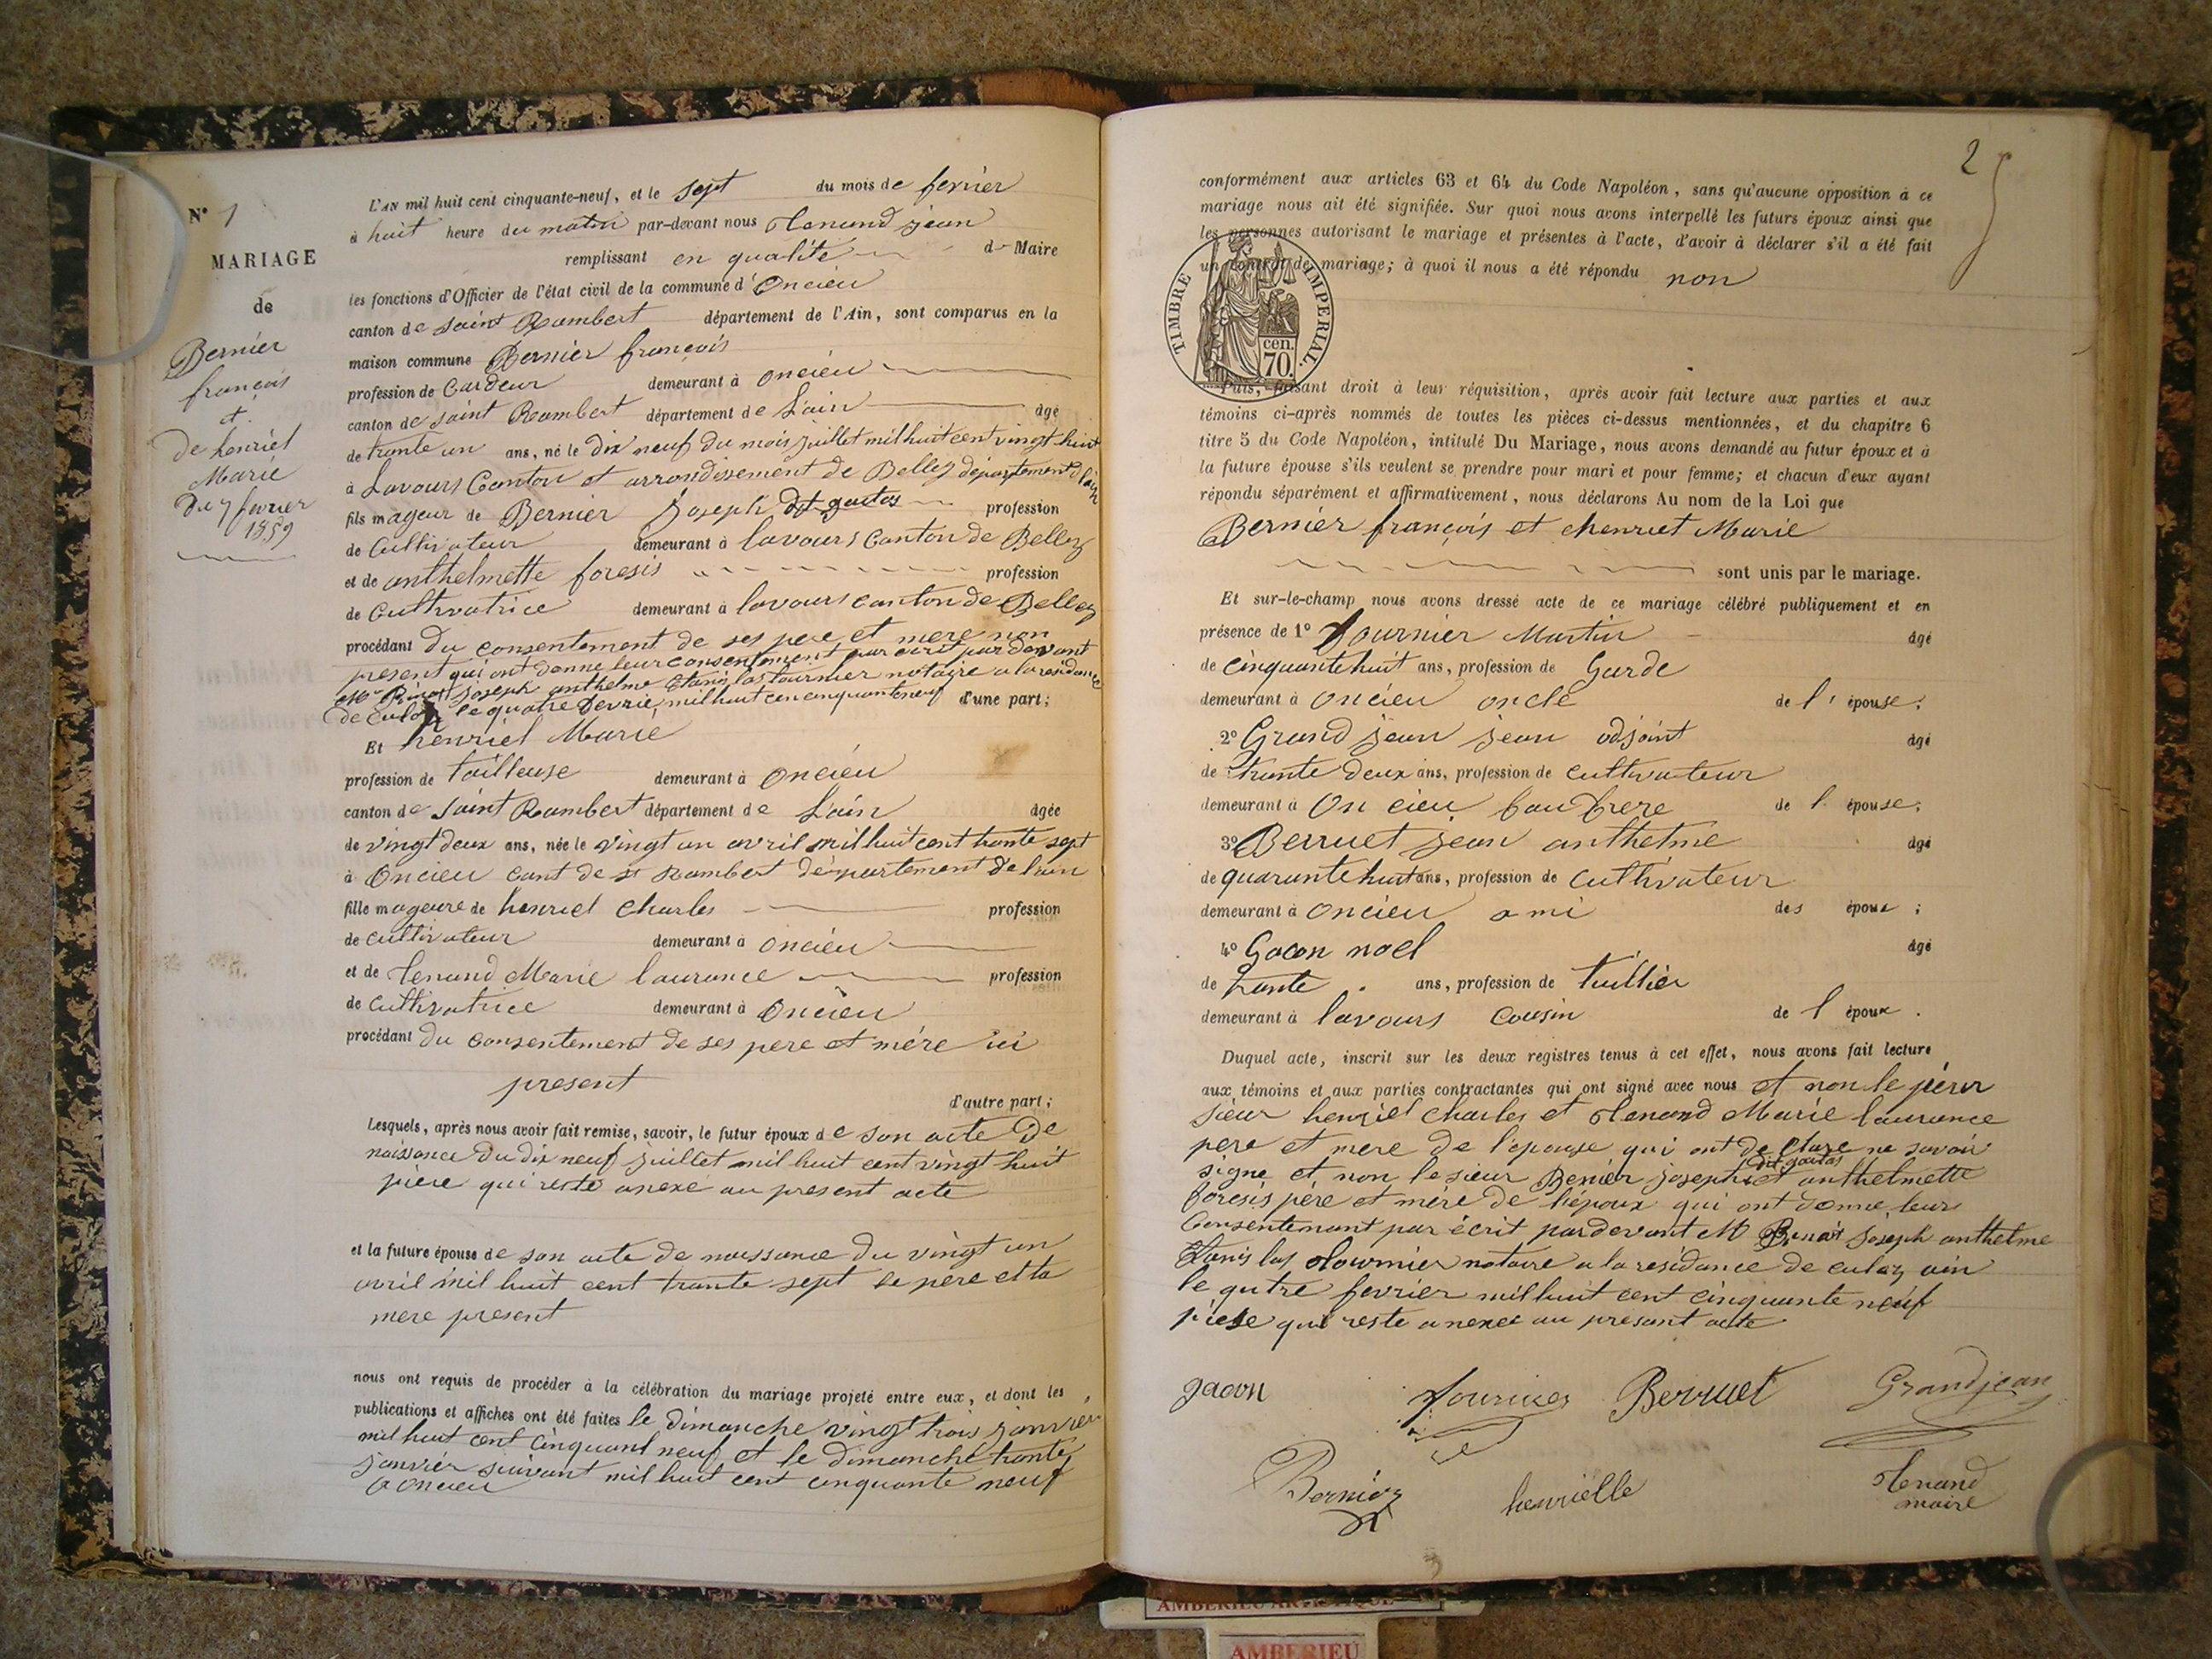 N° 1
MARIAGE
de
Bernier
françois
et
de henriel
Marie
Du 7 fevrier
1859
L'AN mil huit cent cinquante-neuf, et le sept du mois de fevrier
à huit heure du matin par-devant nous Tenand jean
remplissant en qualité de Maire
les fonctions d'Officier de l'état civil de la commune d'Oncieu
canton de saint Rambert département de l'Ain, sont comparus en la
maison commune Bernier françois
profession de Cardeur demeurant à oncieu
canton de saint Rambert département de L'ain âgé
de trante un ans, né le dix neuf du mois juillet mil huit cent vingt huit
à Lavours Canton et arrondissement de Belley département d l'ain
fils mageur de Bernier Joseph dit goutas profession
de Cultivateur demeurant à lavours Canton de Belley
et de anthelmette foresis profession
de Cultivatrice demeurant à lavours canton de Belley
procédant du consentement de ses pere et mere non
present qui ont donne leur consentement par ecrit par devant
Me Benoit Joseph anthelme Stanis las tournier notaire a la residance
de Culoz le quatre fevrie mil huit cen cinquante neuf d'une part;
Et henriel Marie
profession de tailleuse demeurant à oncieu
canton de saint Rambert département de L'ain âgée
de vingt deux ans, née le vingt un avril mil huit cent trante sept
à Oncieu cant de st Rambert département de l'ain
fille mageure de henriel Charles profession
de cultivateur demeurant à oncieu
et de Tenand Marie laurance profession
de cultivatrice demeurant à Oncieu
procédant du consentement de ses pere et mére ici
present
d'autre part;
Lesquels, après nous avoir fait remise, savoir, le futur époux de son acte de
naissance du dix neuf juillet mil huit cent vingt huit
pièce qui reste anexé au present acte
et la future épouse de son acte de naissance du vingt un
avril mil huit cent trante sept le pere et la
mere present
nous ont requis de procéder à la célébration du mariage projeté entre eux, et dont les
publications et affiches ont été faites le dimanche vingt trois janvier
mil huit cent cinquant neuf et le dimanche trante
janvier suivant mil huit cent cinquante neuf
a oncieu
2
conformément aux articles 63 et 64 du Code Napoléon, sans qu'aucune opposition à ce
mariage nous ait été signifiée. Sur quoi nous avons interpellé les futurs époux ainsi que
les personnes autorisant le mariage et présentes à l'acte, d'avoir à déclarer s'il a été fait
un contrat de mariage; à quoi il nous a été répondu non
TIMBRE IMPERIAL
70 cen.
Puis, faisant droit à leur réquisition, après avoir fait lecture aux parties et aux
témoins ci-après nommés de toutes les pièces ci-dessus mentionnées, et du chapitre 6
titre 5 du Code Napoléon, intitulé Du Mariage, nous avons demandé au futur époux et à
la future épouse s'ils veulent se prendre pour mari et pour femme; et chacun d'eux ayant
répondu séparément et affirmativement, nous déclarons Au nom de la Loi que
Bernier françois et henriet Marie
sont unis par le mariage.
Et sur-le-champ nous avons dressé acte de ce mariage célébré publiquement et en
présence de 1° Fournier Martin âgé
de cinquante huit ans, profession de Garde
demeurant à Oncieu oncle de l'épouse;
2° Grand jean jean adjoint âgé
de trante deux ans, profession de cultivateur
demeurant à On cieu bau frere de l épouse;
3° Berruet jean anthelme âgé
de quarante huit ans, profession de Cultivateur
demeurant à oncieu ami des époux;
4° Gacon noel âgé
de trante ans, profession de tuillier
demeurant à lavours Cousin de l époux.
Duquel acte, inscrit sur les deux registres tenus à cet effet, nous avons fait lecture
aux témoins et aux parties contractantes qui ont signé avec nous et non le
sieur henriel Charles et Tenand Marie laurance
pere et mere de l'epouse qui ont de clare ne savoir
signe et non le sieur Benier joseph dit goutas et anthelmette
foresis père et mère de l'époux qui ont donne leur
Consentement par écrit pardevant M Benoit Joseph anthelme
Stanis las tournier notaire a la residance de culoz ain
le qutre fevrier mil huit cent cinquante neuf
piese qui reste anexee au present acte
gacon fournier Berruet Grandjean
Bernier henrielle Tenand
maire
AMBERIEU ARTISTIQUE
AMBERIEU